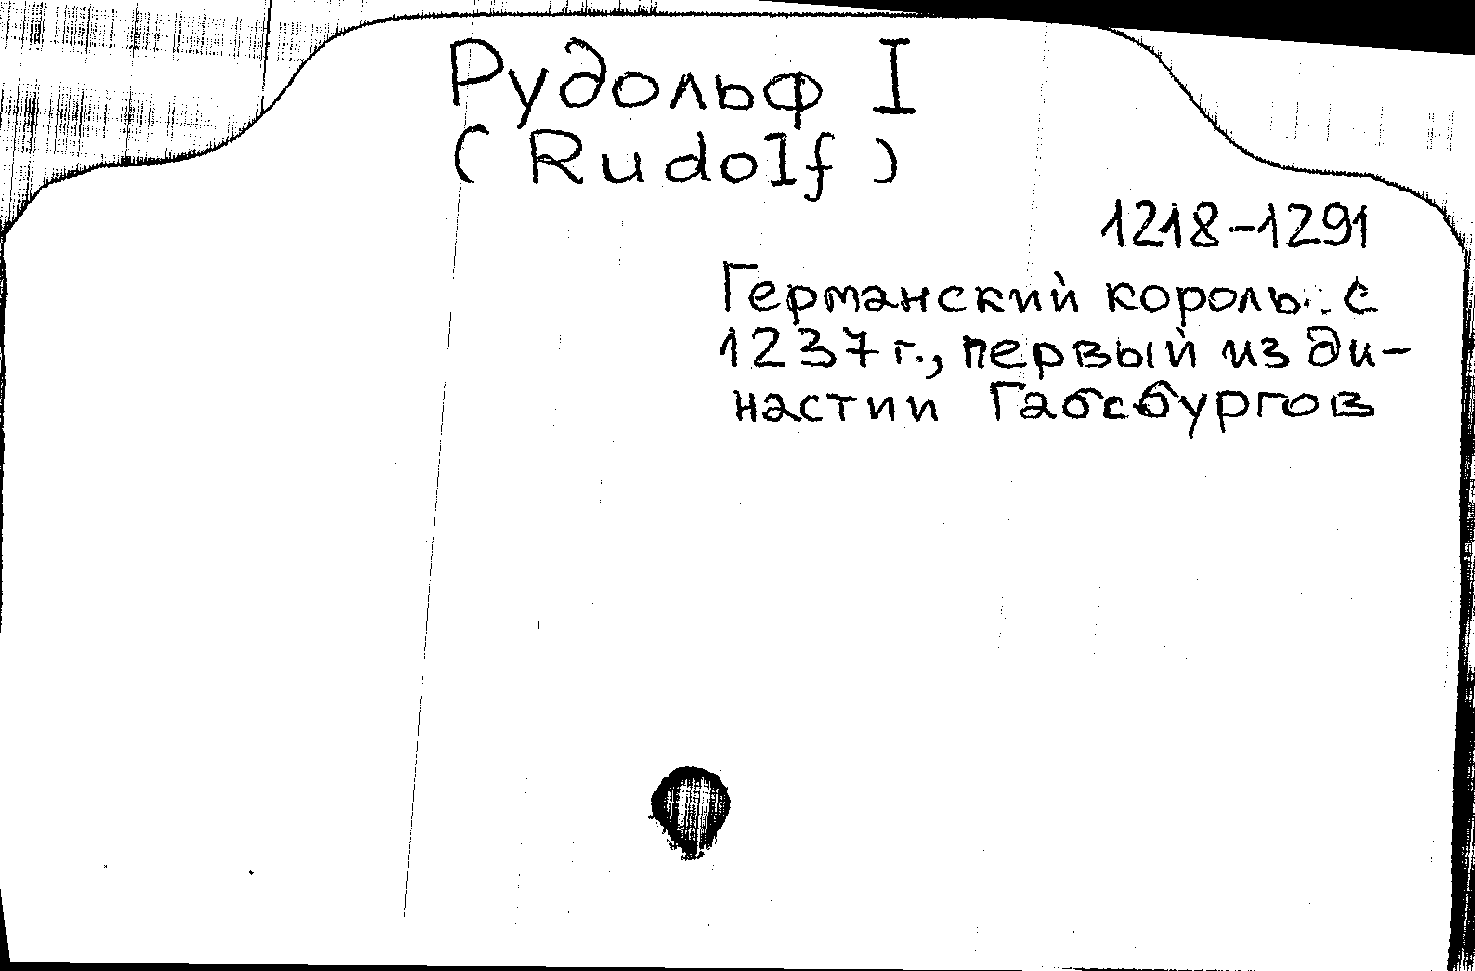 Рудольф I
(Rudolf)
1218-1291
Германский король с
1237 г., первый из ди-
настии Габсбургов